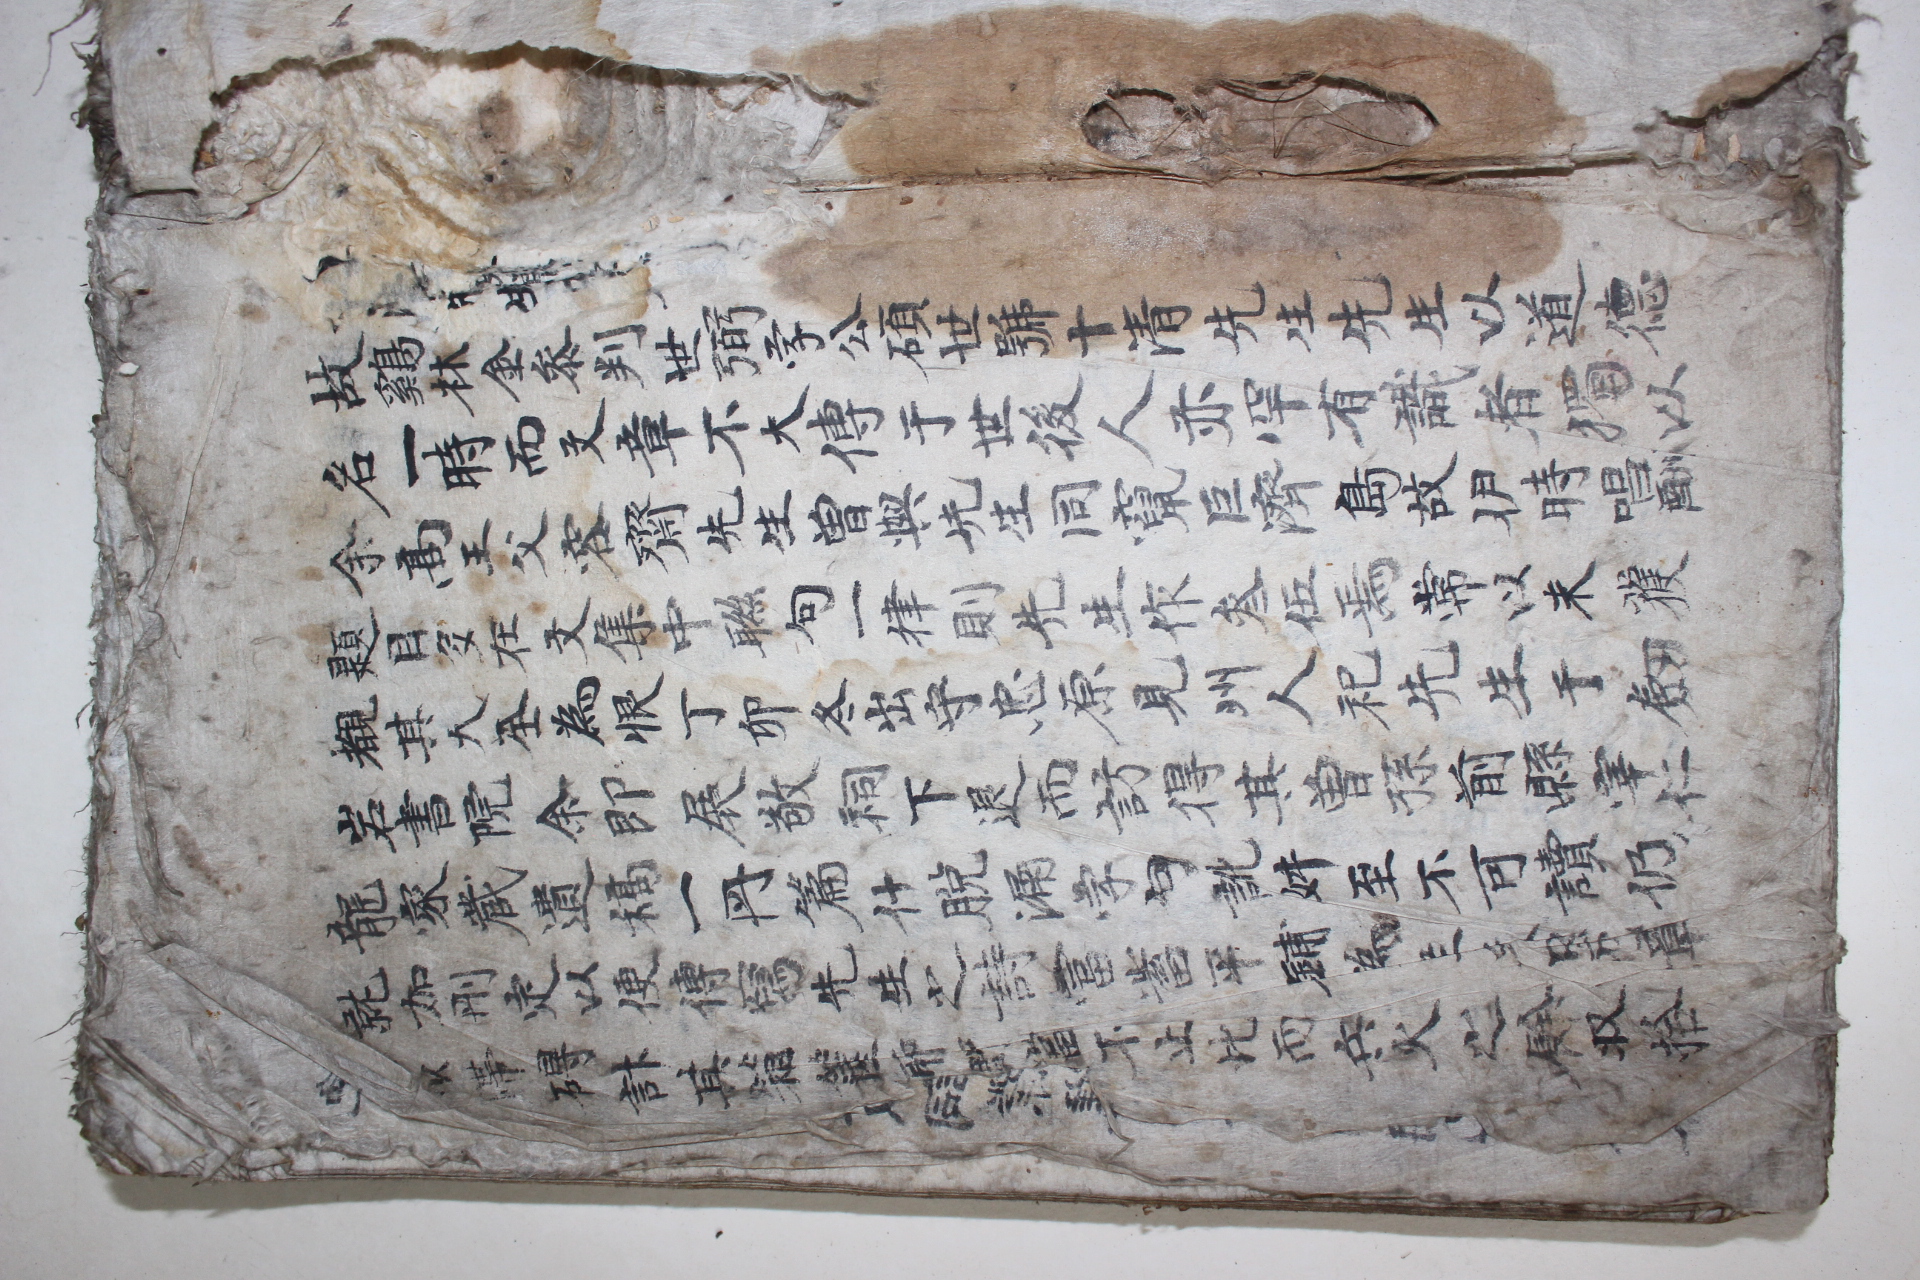 先生
故鷄林金叅判世弼字公碩世號十清先生先生以道德
名一時而文章不大傳于世後人亦罕有識者獨以
余髙王父容齋先生曽與先生同竄巨濟島故伊時唱酬
題目多在文集中聯句一律則先生作叄伍焉常以未獲
觀其大全為恨丁卯冬出守忠原見州人祀先生于劒
岩書院余即展敬祠下退而訪得其曽孫前縣宰仁
龍家蔵遺稿一冊篇什脱漏字句訛舛至不可讀仍
就加刪定以便傳寫先生之詩富蓄平鋪為章
以滯碍計其箱篋所當不止比而兵火之餘収拾